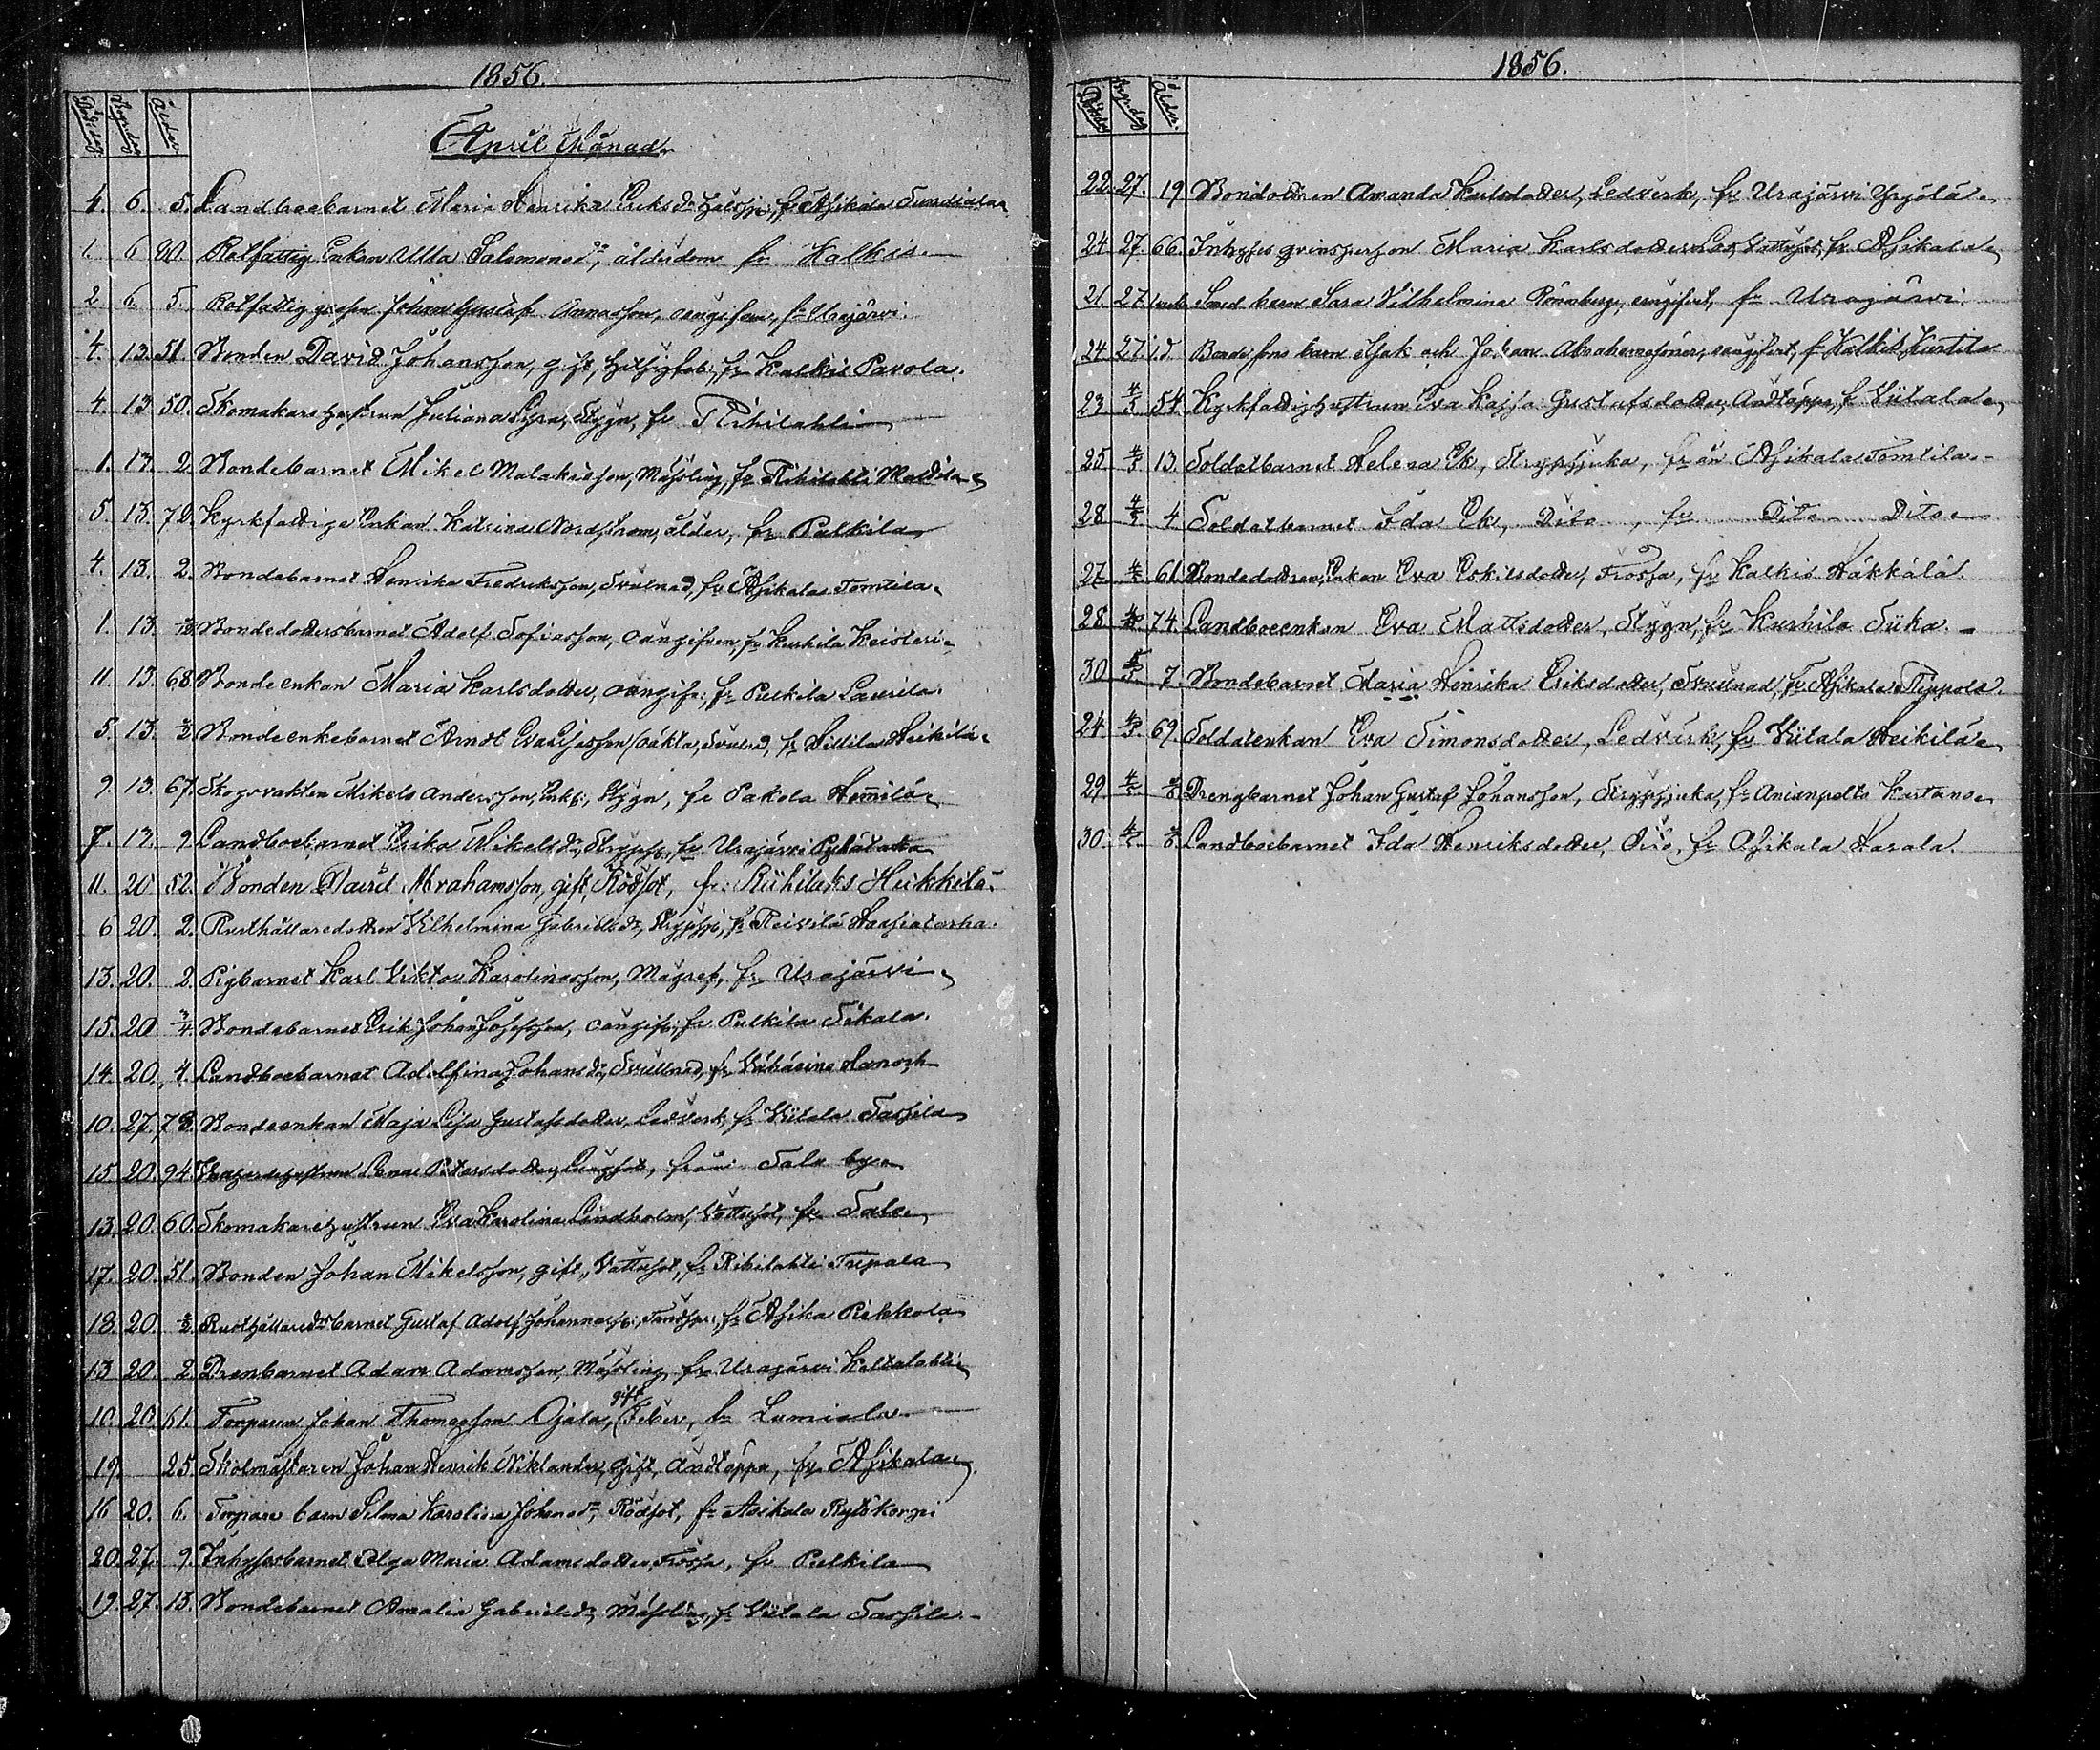 1856.
Död. dag Begr. dag Ålder
April Månad
4. 6. 5. Landboebarnet Maria Henrika Eriksdr fr Asikala
1. 6 90. Rotfattig Enkan Ulla Salomonsdr, ålderdom fr Kalkis
2. 6. 5. Rotfattig gossen Johan Gustaf Annasson, oangifven, fr Urajärvi
4. 13. 51. Bonden David Johansson, gift, fr Kalkis Pavola
4. 13 50. Skomakarehustrun Juliana Styng, fr Riihilahti
1. 13. 2. Bondebarnet Mikel Malakiasson, Mässling, fr Riihilahti Mattila
5. 13. 72. Kyrkfattiga Enkan Katrina Nordstrom, ålder, fr Pulkila
4. 13. 2. Bondebarnet Henrika Fredriksson, Svulnad, fr Asikala Tomtila
1. 13. Bondedottersbarnet Adolf Sofiasson, oangifven, fr Kurhila Keisteri
11. 13. 68. Bondeenkan Maria Karlsdotter, oangif: fr Pulkila Laurila.
5. 13. Bondeenkebarnet Arndt Svulnad, fr Heikilä
9. 13. 67. Skogvakten Mikel Andersson, Enkl: Styng, fr Pakola Hemilä
7. 13. 9. Landboebarnet Erika Mikelsdr, Strypsj, fr Urajärvi
11. 20 52. Bonden David Abrahamsson, gift, Rödsot, fr: Riihilaks Heikkilä
6 20. 2. Rusthållaredottren Vilhelmina Gabrielsdr, Strypsj, fr Reivilä
13. 20. 2. Pigbarnet Karl Viktor Karolinasson, Magref, fr Urajärvi
15. 20 3/4 Bondebarnet Erik Johan Josefsson, oangif: fr Pulkila Sikala.
14. 20. 4. Landboebarnet Adolfina Johansdr, Svullnad, fr Vähäeino
10. 27. 73. Bondeenkan Maja Lisa Gustafsdotter, Ledverk, fr Viitala Tassila
15. 20. 94. Lena Petersdotter, Lungsot, från Sala by
13. 20. 60. Skomakarehustrun Eva Karolina Lindholm, Vattusot, fr Sala
17. 20. 51. Bonden Johan Mikelsson, gift, Vattusot, fr Riihilahti Tupala
18. 20. Rusthållaredrs barnet Gustaf Adolf fr Asika Pikkola
13 20. 2. Drenbarnet Adam Adamsson, Mässling, fr Urajärvi Kaltalahti
gift
10. 20. 61. Torparen Johan Thomasson Ojala, Feber, fr Lumiala
19. 25. Skolmästaren Johan Henrik Niklander, gift, Andtäppa, fr Asikala
16 20. 6. Torpare barn Selma Karolina Johansdr, Rödsot, fr Asikala Rytökorpi
20. 27. 9. Inhysesbarnet Olga Maria Adamsdotter, Frossa, fr Pulkila
19. 27. 13. Bondebarnet Amalia Gabrielsdr, Mässling, fr Viitala Tassila
1856.
Död. dag Begr. dag Ålder.
22. 27. 19 Bondottren Amanda Ledverk, fr Urajärvi Yrjölä
24 27. 66. Inhyses qvinsperson Maria Karlsdotter Vattusot, fr Asikala
21. 27. Smed barn Sara Vilhelmina Rönnberg, oangifvet, fr Urajärvi
24 27. 1 d. Bonde sons barn Isak och Johan Abrahamssöner, oangifvet, fr Kalkis Kurtila
23 4/5 54. Kyrkfattighustrun Eva Kajsa Gustafsdotter, Andtäppa, fr Viitala
25 4/5 13. Soldatbarnet Helena Ek, Strypsjuka, från Asikala Tomtila
28 4/5 4 Soldatbarnet Ida Ek, Dito, fr Dito Dito
27 4/5 61. Bondedottren, Enkan Eva Eskilsdotter, Frossa, fr Kalkis Häkkälä.
28 4/5 74. Landboeenkan Eva Mattsdotter, Styng, fr Kurhila Siika.
30 7. Bondebarnet Maria Henrika Eriksdotter, Svullnad, fr Asikala Teppola.
24. 4/5 69. Soldatenkan Eva Simonsdotter, Ledverk, fr Viitala Heikilä
29 4/5 Drengbarnet Johan Gustaf Johansson, Strypsjuka, fr Anianpelto Kartano
30. 4/5 Landboebarnet Ida Henriksdotter, Dito, fr Asikala Harala.